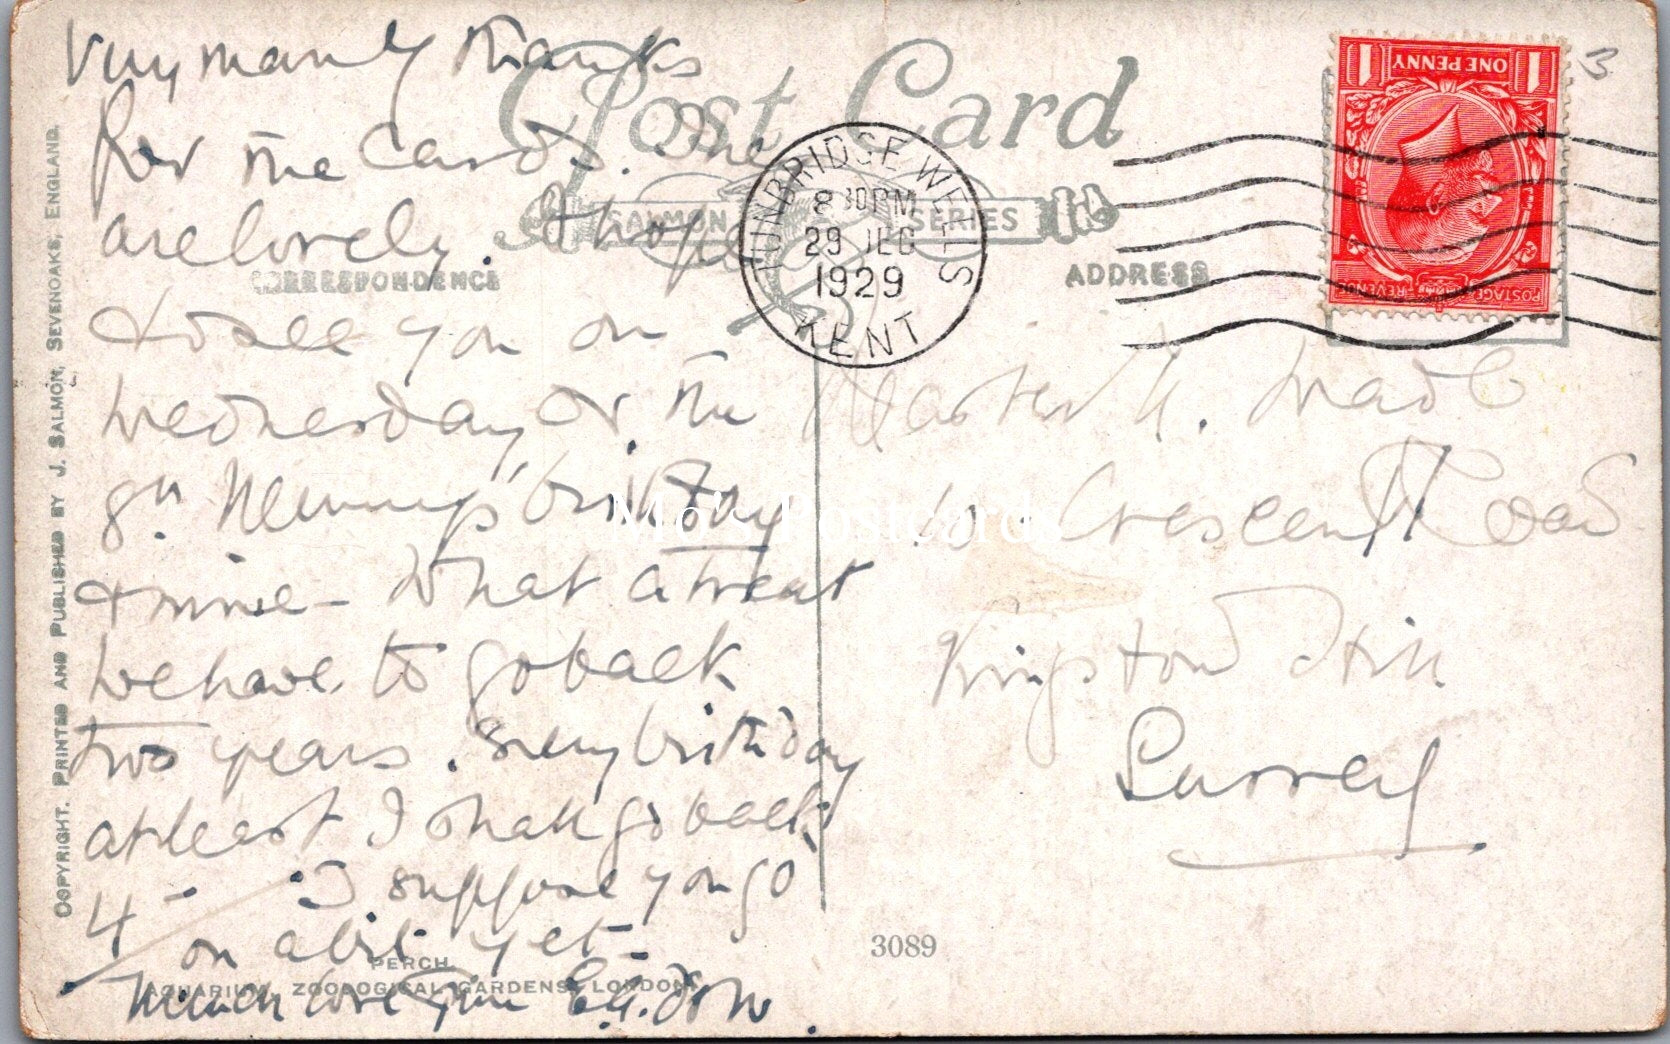 Very many thanks
for the cards. The
are lovely. I hope
to see you on
Wednesday or the
8th Mummy's birthday
& mine - What a treat
we have to go back
two years. Every birthday
at least I shall go back
4 - I suppose you go
on a bit yet -
Much love from
Post Card
SALMON SERIES
CORRESPONDENCE
ADDRESS
TUNBRIDGE WELLS
8 30 PM
29 DEC
1929
KENT
ONE PENNY
1 1
POSTAGE REVENUE
3
Master
Crescent Road
Kingston Hill
Surrey
3089
PERCH.
AQUARIUM, ZOOLOGICAL GARDENS, LONDON.
COPYRIGHT. PRINTED AND PUBLISHED BY J. SALMON, SEVENOAKS, ENGLAND.
Mo's Postcards